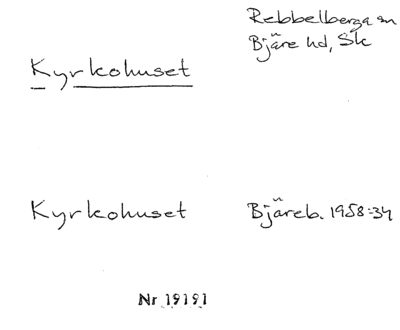 Rebbelberga sn
Bjäre hd, Sk
Kyrkohuset
Kyrkohuset Bjäreb. 1958:34
Nr 19191